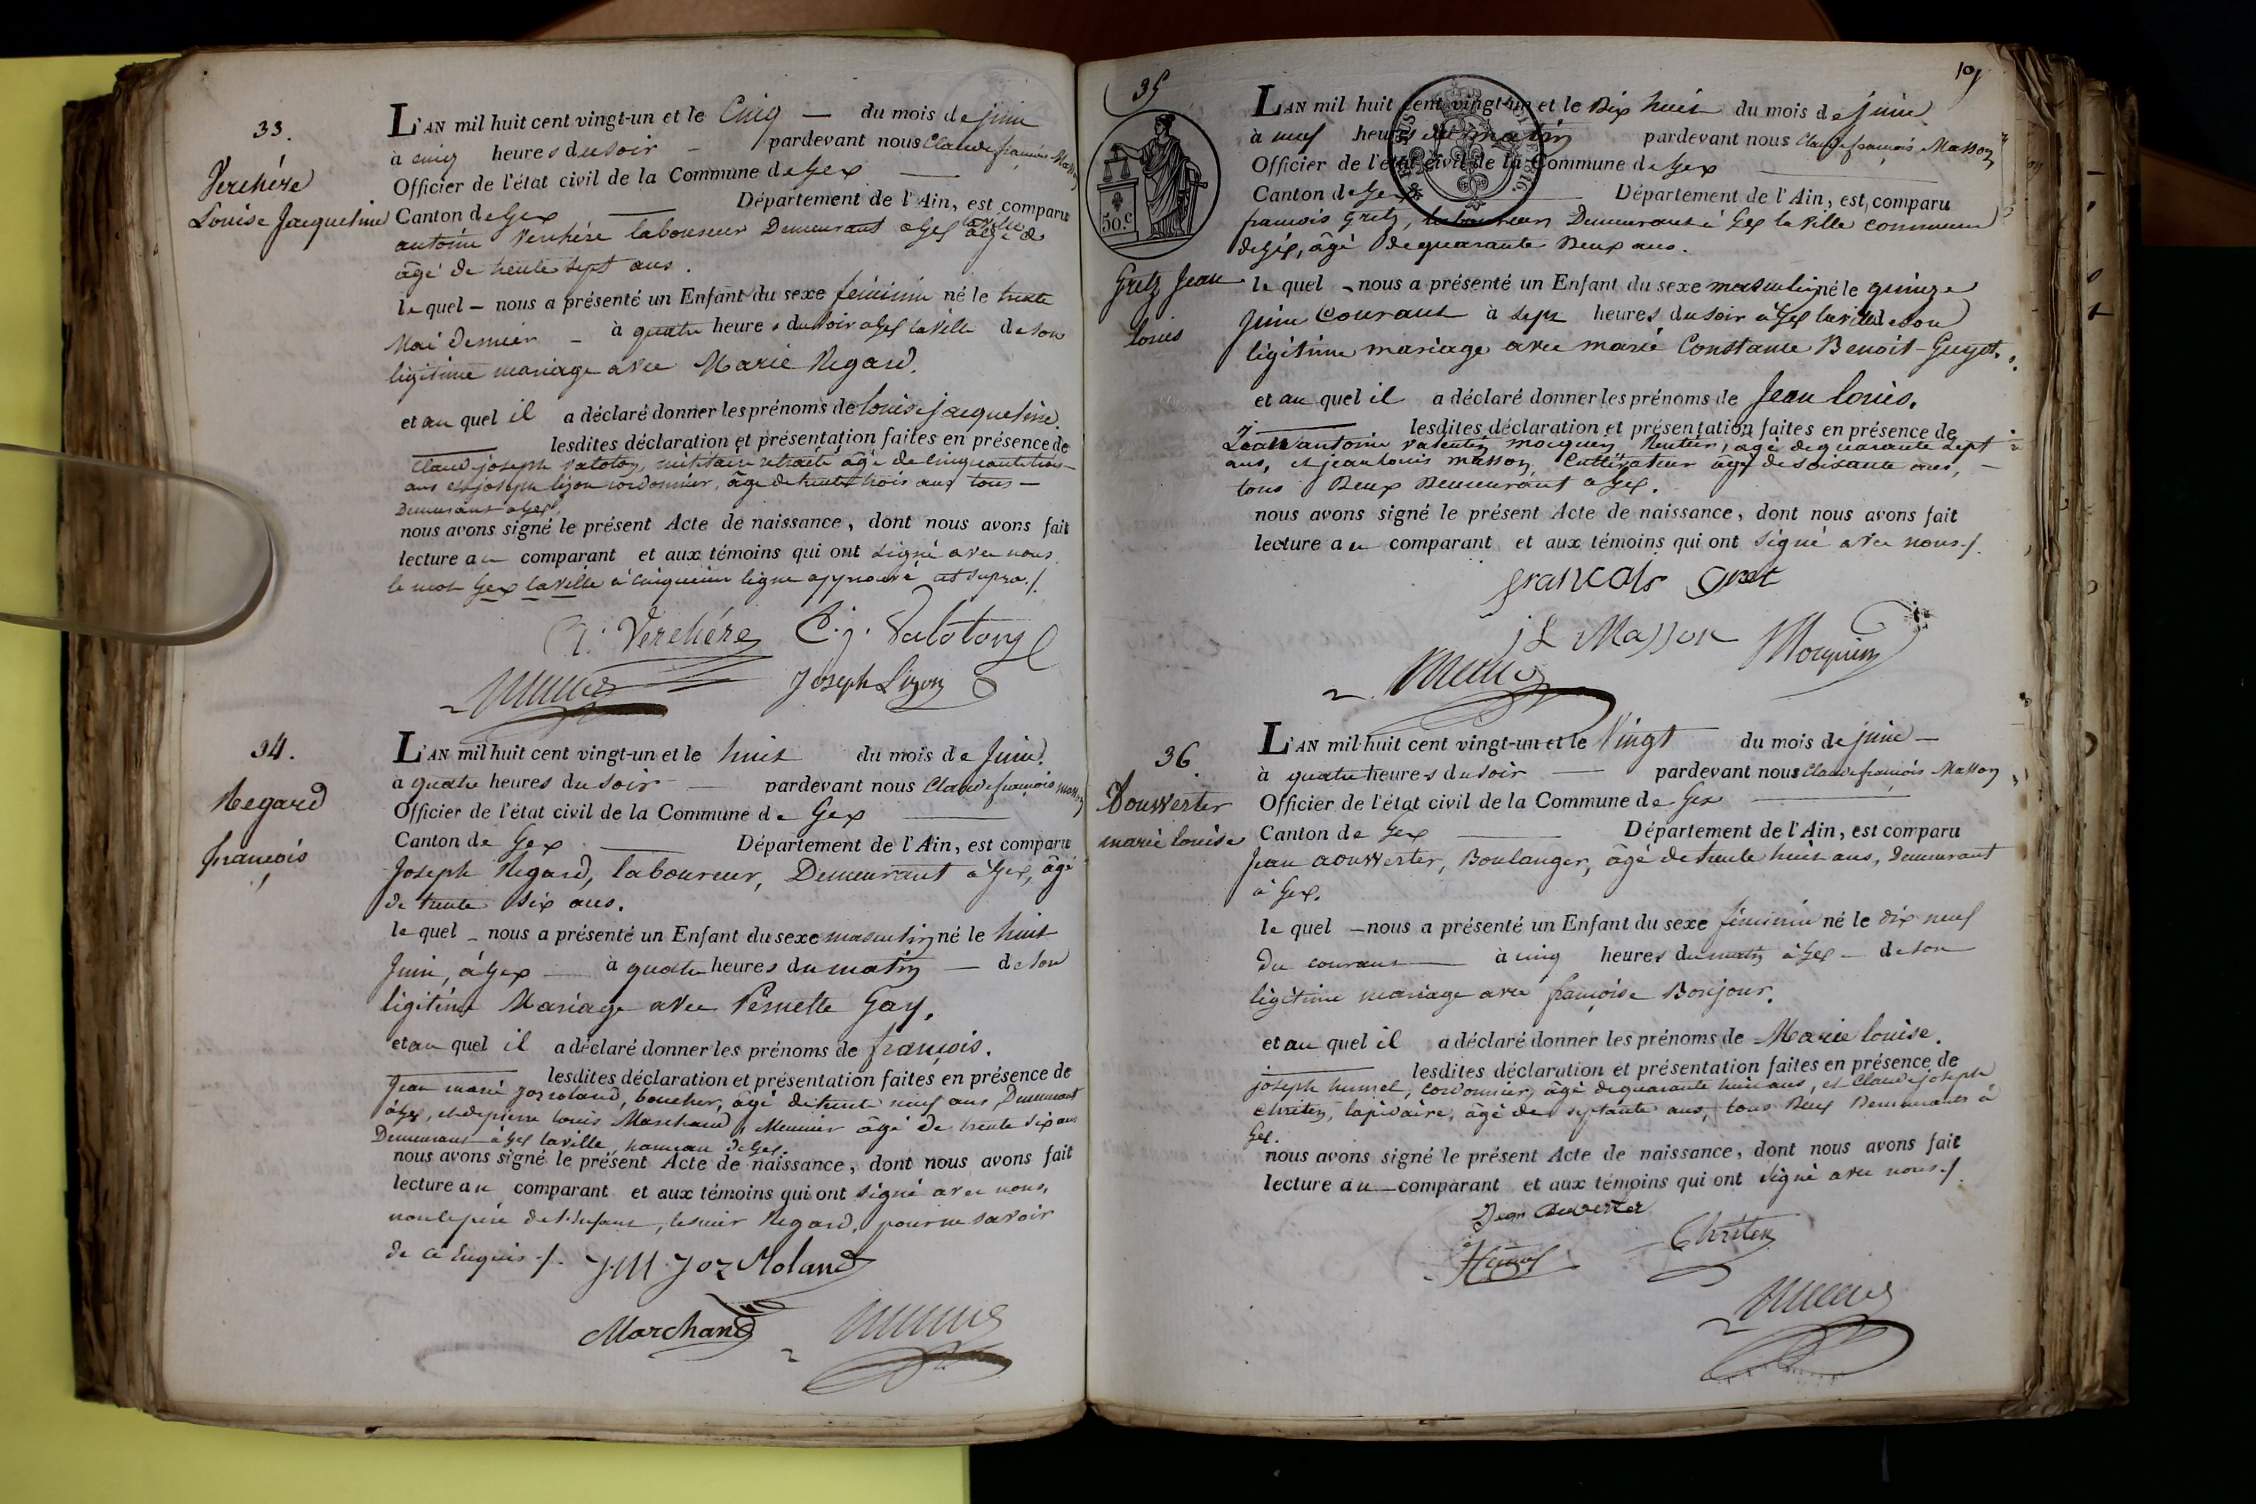 33.
Verchére
Louise Jacqueline
L'AN mil huit cent vingt-un et le Cinq — du mois de juin
à cinq heures du soir — pardevant nous Claude françois Masson
Officier de l'état civil de la Commune de Gex
Canton de Gex Département de l'Ain, est comparu
antoine Verchére laboureur Demeurant a Gex la ville
âgé de trente sept ans.
le quel — nous a présenté un Enfant du sexe féminin né le trente
Mai dernier — à quatre heures du soir a Gex la ville de son
légitime mariage avec Marie Regard.
et au quel il a déclaré donner les prénoms de louise jacqueline.
lesdites déclaration et présentation faites en présence de
Claude joseph Valoton, militaire retraité âgé de cinquante trois
ans et joseph lizon cordonnier, âgé de trente trois ans tous —
Demeurant a Gex,
nous avons signé le présent Acte de naissance, dont nous avons fait
lecture au comparant et aux témoins qui ont signé avec nous
le mot Gex la ville à cinquieme ligne approuvé ut supra ./.
A. Verchére C. j. Valoton
Joseph Lizon
34.
Regard
françois
L'AN mil huit cent vingt-un et le huit du mois de Juin.
à quatre heures du soir — pardevant nous Claude françois Masson
Officier de l'état civil de la Commune de Gex
Canton de Gex Département de l'Ain, est comparu
Joseph Regard, laboureur, Demeurant à Gex, âgé
de trente six ans.
le quel — nous a présenté un Enfant du sexe masculin né le huit
Juin, à Gex — à quatre heures du matin — de son
légitime Mariage avec Pernette Gay,
et au quel il a déclaré donner les prénoms de françois.
lesdites déclaration et présentation faites en présence de
Jean marie joz roland, boucher, âgé de trente neuf ans Demeurant
à Gex, et de pierre louis Marchand, Meunier âgé de trente six ans
Demeurant à Gex la ville, hameau de Gex.
nous avons signé le présent Acte de naissance, dont nous avons fait
lecture au comparant et aux témoins qui ont signé avec nous,
non le père de l'enfant, le sieur Regard, pour ne savoir
de ce Enquis ./. J.M. Joz Roland
Marchand
109
35
50.c
Gretz Jean
Louis
L'AN mil huit cent vingt-un et le Dix huit du mois de juin
à neuf heures du matin pardevant nous Claude françois Masson
Officier de l'état civil de la Commune de Gex
Canton de Gex Département de l'Ain, est comparu
françois Gretz, laboureur Demeurant à Gex la ville commune
de Gex, âgé de quarante Deux ans.
le quel — nous a présenté un Enfant du sexe masculin né le quinze
Juin Courant à sept heures du soir à Gex la ville de son
légitime mariage avec marie Constance Benoit-Guyot.
et au quel il a déclaré donner les prénoms de Jean louis.
lesdites déclaration et présentation faites en présence de
Jean antoine Valentin mocquin, Rentier, âgé de quarante sept
ans, et jean louis masson, Cultivateur âgé de soixante ans,
tous Deux Demeurant a Gex.
nous avons signé le présent Acte de naissance, dont nous avons fait
lecture au comparant et aux témoins qui ont signé avec nous ./.
francois Gret
j L Masson Mocquin
36.
Douwerter
marie louise
L'AN mil huit cent vingt-un et le Vingt du mois de juin —
à quatre heures du soir — pardevant nous Claude françois Masson
Officier de l'état civil de la Commune de Gex
Canton de Gex Département de l'Ain, est comparu
Jean Douwerter, Boulanger, âgé de trente huit ans, Demeurant
à Gex.
le quel — nous a présenté un Enfant du sexe féminin né le dix neuf
Du courant — à cinq heures du matin à Gex — de son
légitime mariage avec françoise Bonjour.
et au quel il a déclaré donner les prénoms de Marie louise.
lesdites déclaration et présentation faites en présence de
joseph humel, Cordonnier, âgé de quarante huit ans, et Claude joseph
Chrêten, lapidaire, âgé de septante ans, tous Deux Demeurants à
Gex.
nous avons signé le présent Acte de naissance, dont nous avons fait
lecture au — comparant et aux témoins qui ont signé avec nous ./.
Jean Duverter
Chrêten